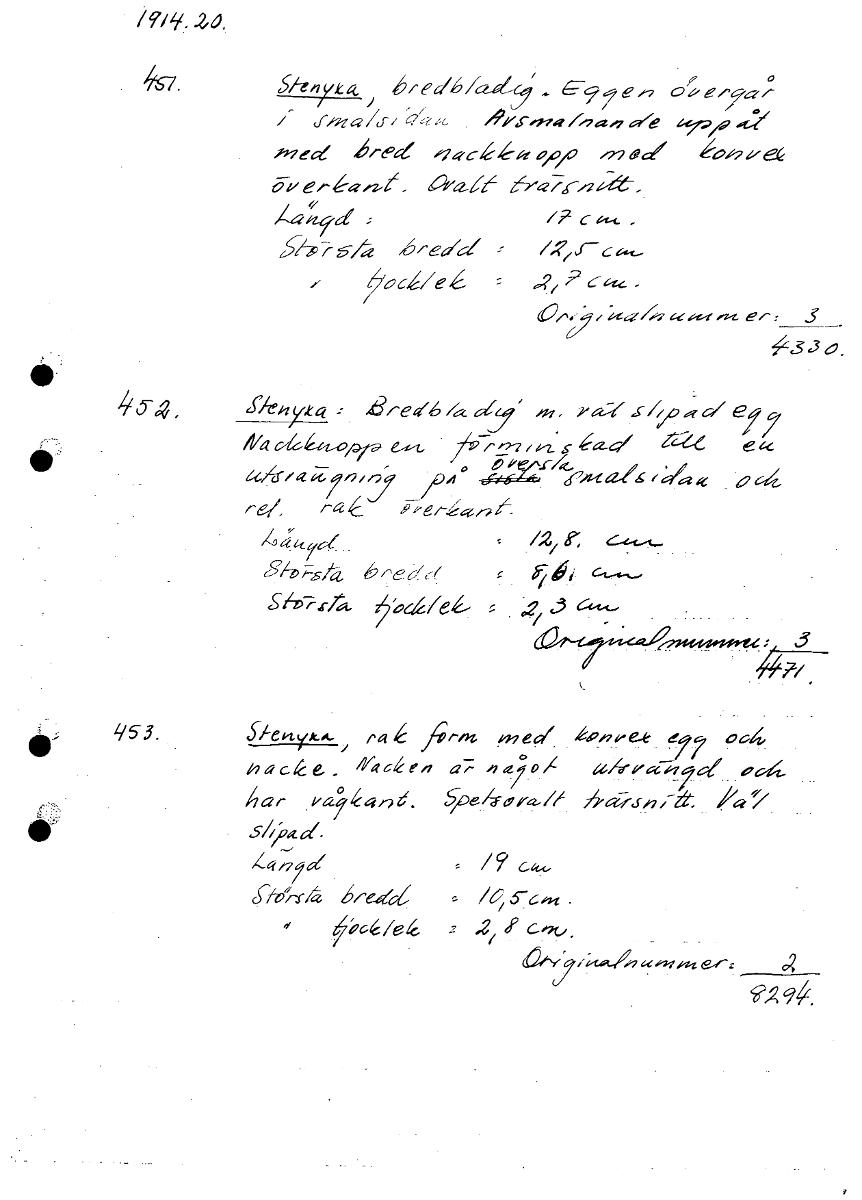 1914.20.
451. Stenyxa, bredbladig. Eggen övergår
i smalsidan. Avsmalnande uppåt
med bred nackknopp med konvex
överkant. Ovalt tvärsnitt.
Längd = 17 cm.
Största bredd = 12,5 cm
" tjocklek = 2,7 cm.
Originalnummer: 3
4330.
452. Stenyxa: Bredbladig m. väl slipad egg
Nackknoppen förminskad till en
översta
utsvängning på sista smalsidan och
rel. rak överkant.
Längd = 12,8. cm
Största bredd = cm
Största tjocklek = 2,3 cm
Originalnummer: 3
4471.
453. Stenyxa, rak form med konvex egg och
nacke. Nacken är något utsvängd och
har vågkant. Spetsovalt tvärsnitt. Väl
slipad.
Längd = 19 cm
Största bredd = 10,5 cm.
" tjocklek = 2,8 cm.
Originalnummer: 2
8294.